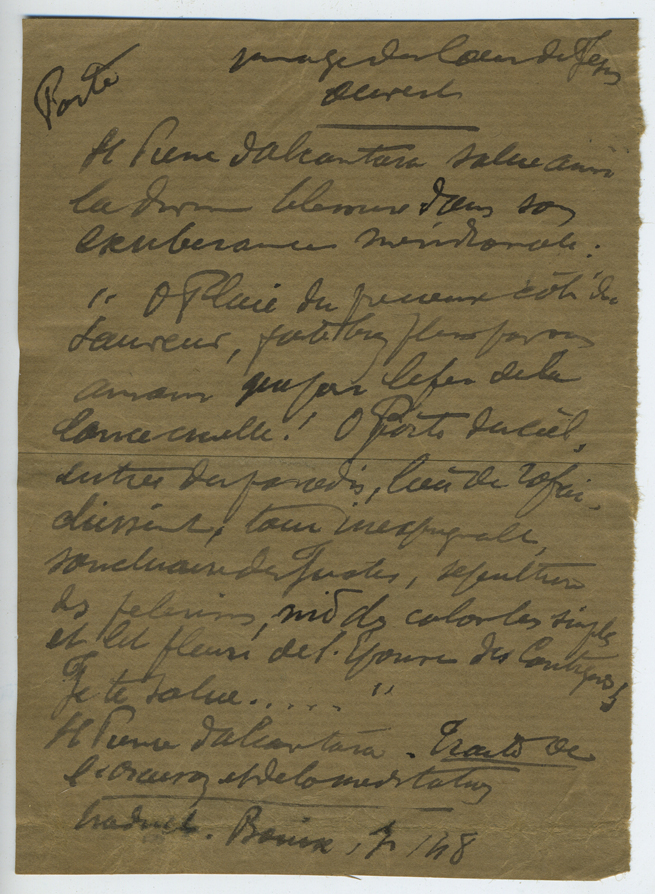 Porte
image du Coeur de Jesus
ouvert
St Pierre d'Alcantara salue ainsi
la divine blessure dans son
exuberance méridionale :
" O Plaie du precieux côté du
Sauveur, faite bien plus par son
amour que par le fer de la
lance cruelle ! O Porte du ciel,
entrée du paradis, lieu de rafrai-
chissement, tour inexpugnable,
sanctuaire des Justes, sepulture
des pelerins, nid des colombes simples
et lit fleuri de l'Epouse des Cantiques !
Je te salue ..... "
St Pierre d'Alcantara - Traité de
l'oraison et de la meditation
traduct. Bouix, p 148